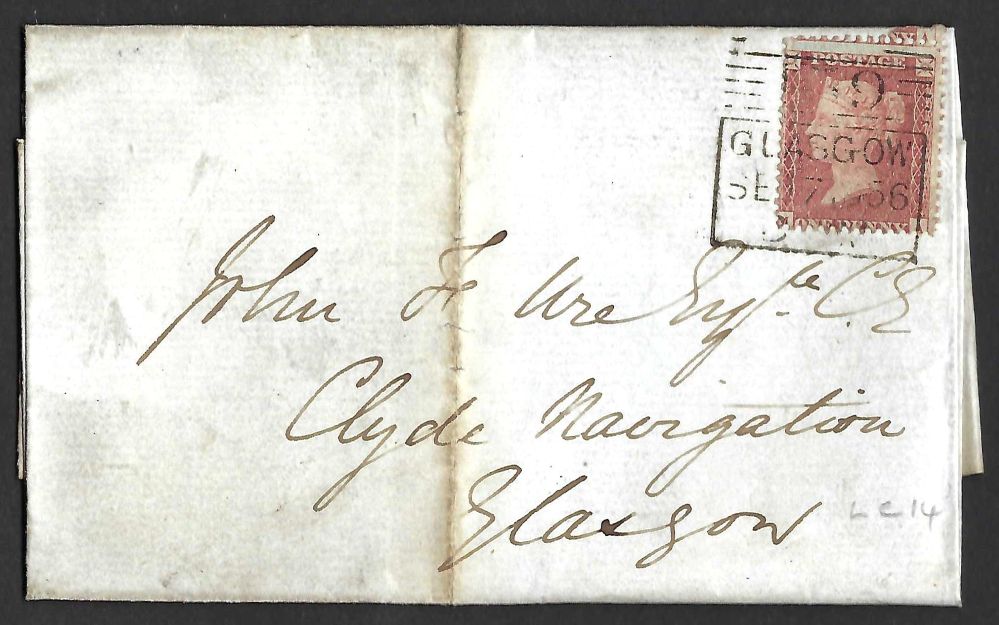 POSTAGE
9
GLASGOW
SE 7 1856
John F Ure Esqre C.E
Clyde Navigation
Glasgow
LC14